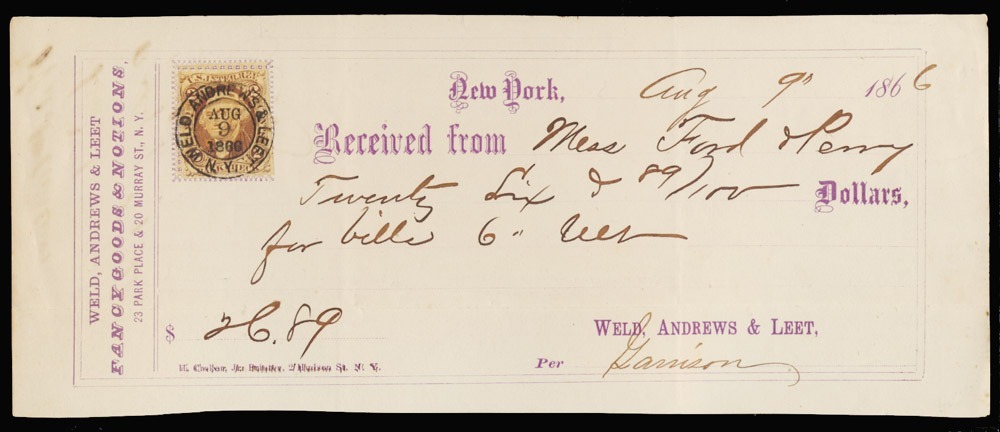 WELD, ANDREWS & LEET
FANCY GOODS & NOTIONS,
23 PARK PLACE & 20 MURRAY ST., N. Y.
U.S. INTER. REV.
WELD, ANDREWS & LEET
AUG
9
1866
N.Y.
New York, Aug 9" 1866
Received from Mess Ford & Perry
Twenty Six & 89/100 Dollars,
for bills 6"
$ 26.89
WELD, ANDREWS & LEET,
Per Garrison
Jr. Printer, St. N. Y.